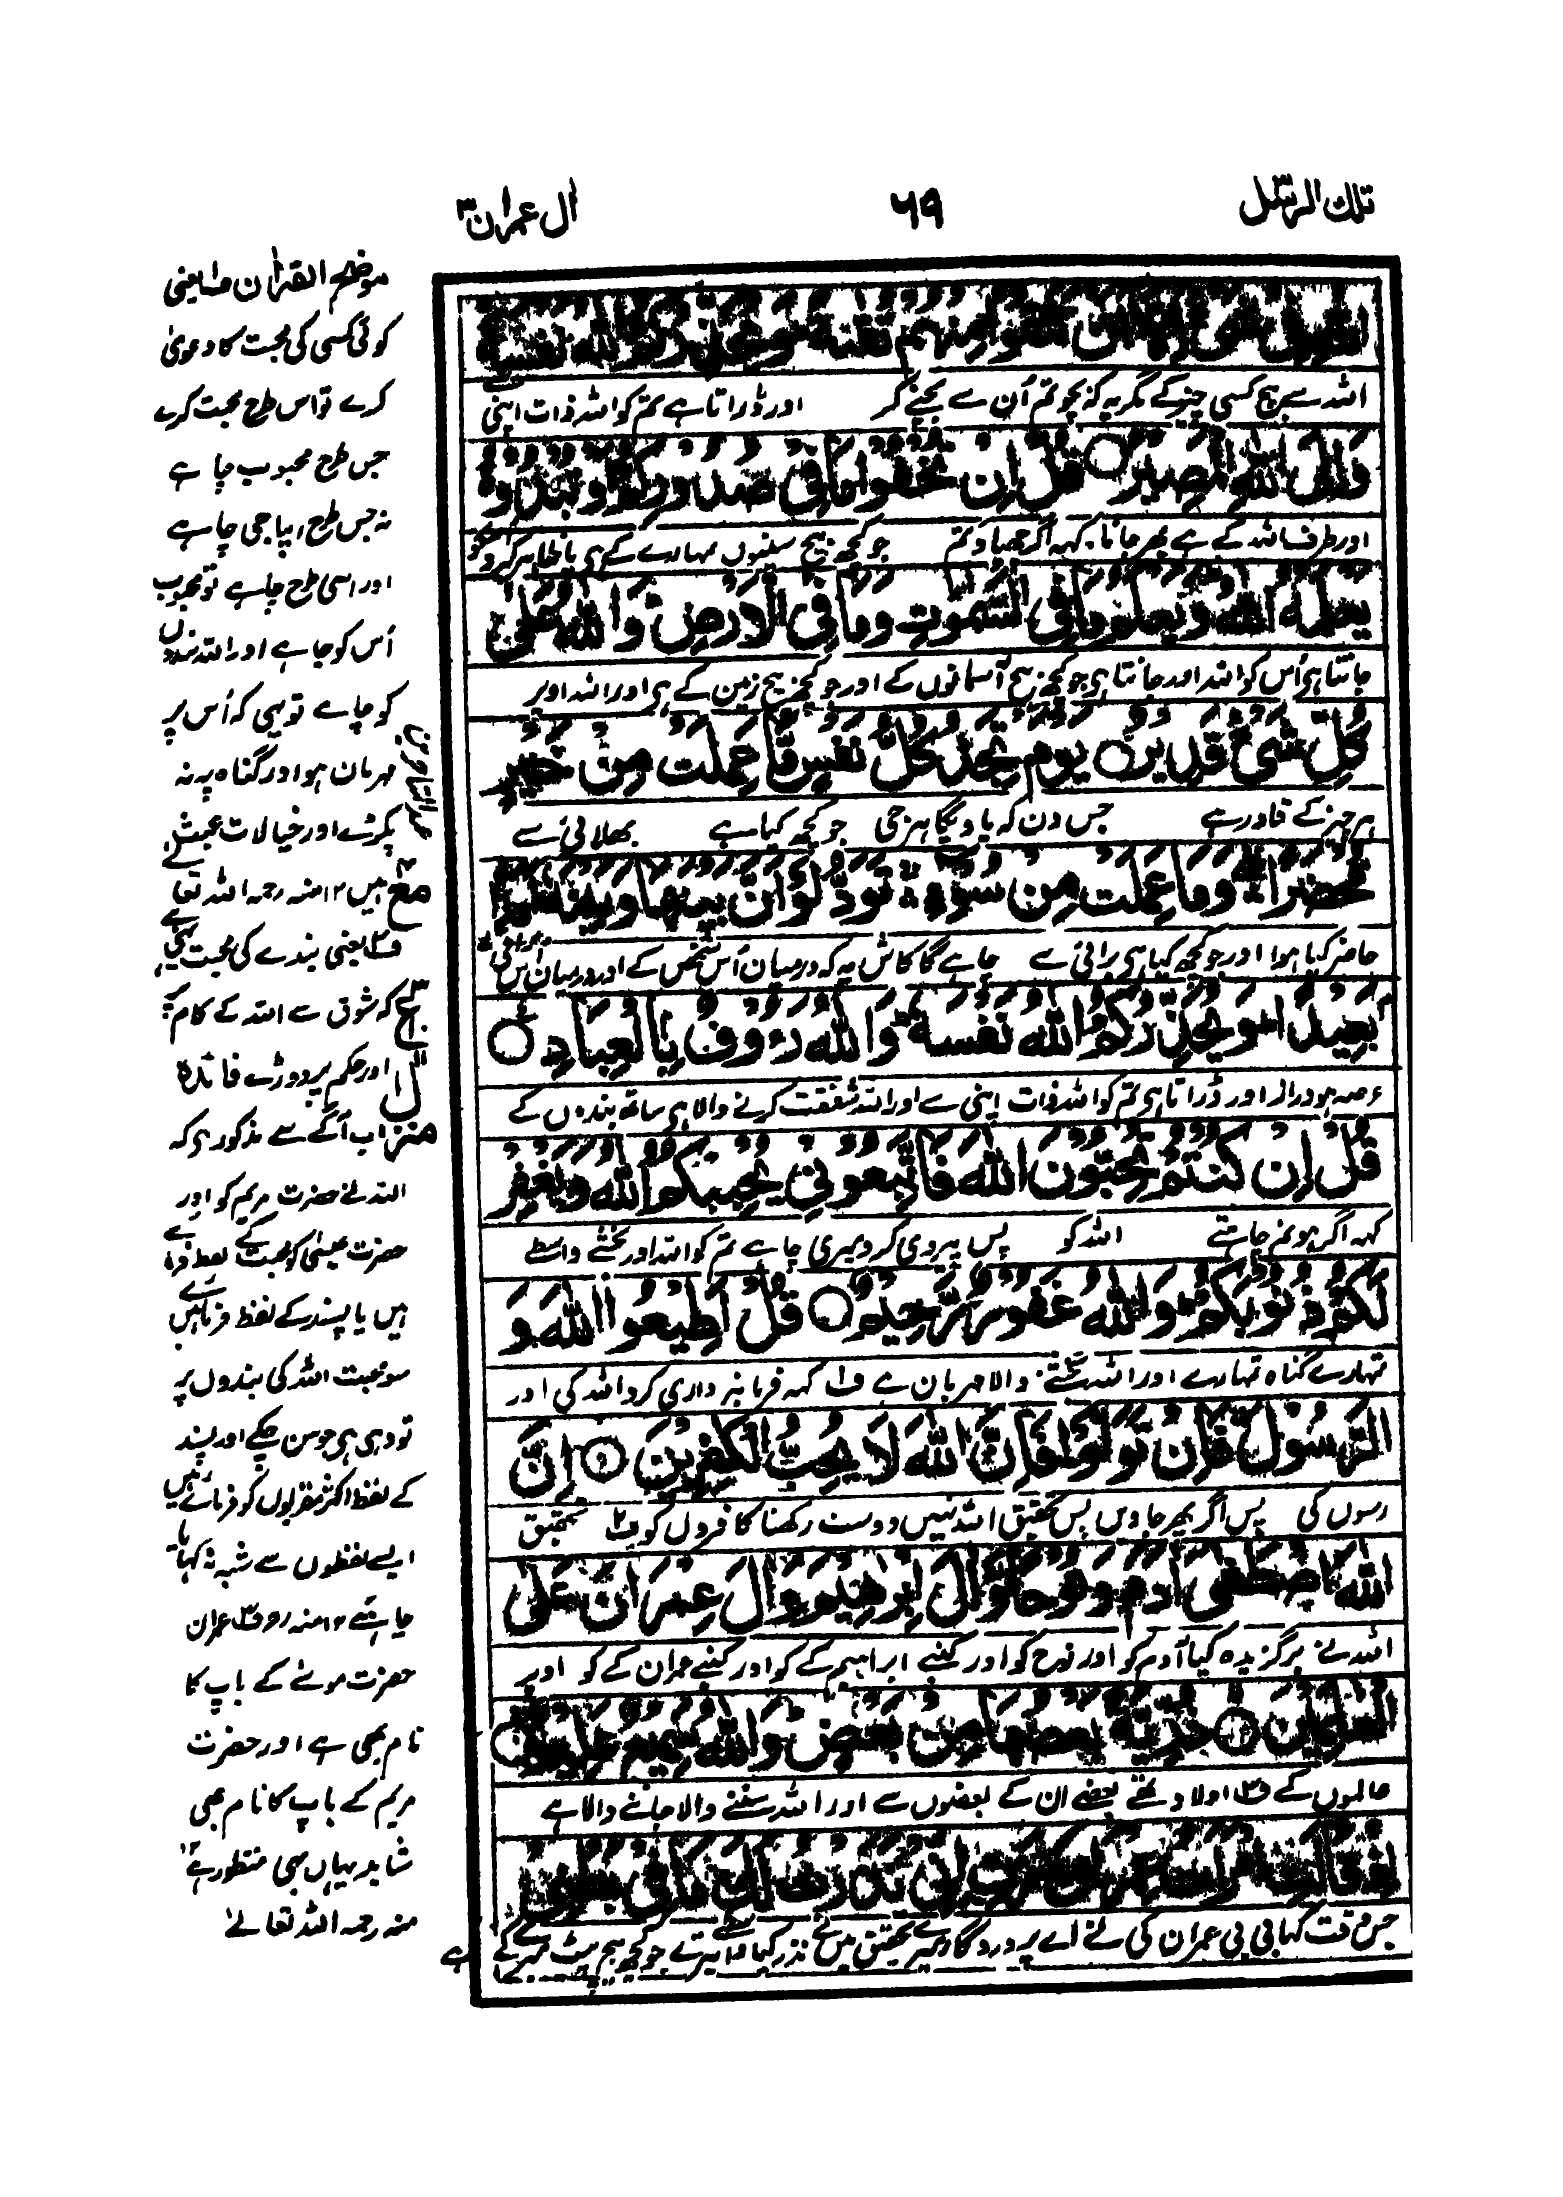 تلك الرسل ٣
٦٩
ال عمران ٣
اللہ سے بیچ کسی چیز کے مگر یہ کہ بچو تم اُن سے بچنے کر اور ڈراتا ہے تم کو اللہ ذات اپنی
وَاِلَى اللّٰهِ الْمَصِيْرُ ○ قُلْ اِنْ تُخْفُوْا مَا فِيْ صُدُوْرِكُمْ اَوْ تُبْدُوْهُ
اور طرف اللہ کے ہے پھر جانا کہہ اگر چھپاؤ تم جو کچھ بیچ سینوں تمہارے کے ہی یا ظاہر کرو
يَعْلَمْهُ اللّٰهُ وَيَعْلَمُ مَا فِي السَّمٰوٰتِ وَمَا فِي الْاَرْضِ وَاللّٰهُ عَلٰى
جانتا ہی اُس کو اللہ اور جانتا ہی جو کچھ بیچ آسمانوں کے اور جو کچھ بیچ زمین کے ہی اور اللہ اوپر
كُلِّ شَيْءٍ قَدِيْرٌ ○ يَوْمَ تَجِدُ كُلُّ نَفْسٍ مَّا عَمِلَتْ مِنْ خَيْرٍ
ہر چیز کے قادر ہے جس دن کہ پاویگا ہر جی جو کچھ کیا ہے بھلائی سے
مُّحْضَرًا وَّمَا عَمِلَتْ مِنْ سُوْءٍ تَوَدُّ لَوْ اَنَّ بَيْنَهَا وَبَيْنَهٗ اَمَدًا
حاضر کیا ہوا اور جو کچھ کیا ہی برائی سے چاہے گا کاش یہ کہ درمیان اُس شخص کے اور درمیان اس
بَعِيْدًا وَيُحَذِّرُكُمُ اللّٰهُ نَفْسَهٗ وَاللّٰهُ رَءُوْفٌ بِالْعِبَادِ ○
ہو دراز اور ڈراتا ہی تم کو اللہ ذات اپنی سے اور اللہ شفقت کرنے والا ہی ساتھ بندوں کے
قُلْ اِنْ كُنْتُمْ تُحِبُّوْنَ اللّٰهَ فَاتَّبِعُوْنِيْ يُحْبِبْكُمُ اللّٰهُ وَيَغْفِرْ
کہہ اگر ہو تم چاہتے اللہ کو پس پیروی کرو میری چاہے تم کو اللہ اور بخشے واسطے
لَكُمْ ذُنُوْبَكُمْ وَاللّٰهُ غَفُوْرٌ رَّحِيْمٌ ○ قُلْ اَطِيْعُوا اللّٰهَ وَ
تمہارے گناہ تمہارے اور اللہ بخشنے والا مہربان ہے ف کہہ فرمانبرداری کرو اللہ کی اور
الرَّسُوْلَ فَاِنْ تَوَلَّوْا فَاِنَّ اللّٰهَ لَا يُحِبُّ الْكٰفِرِيْنَ ○ اِنَّ
رسول کی پس اگر پھر جاویں پس تحقیق اللہ نہیں دوست رکھتا کافروں کو ف تحقیق
اللّٰهَ اصْطَفٰى اٰدَمَ وَنُوْحًا وَّاٰلَ اِبْرٰهِيْمَ وَاٰلَ عِمْرٰنَ عَلَى
اللہ نے برگزیدہ کیا آدم کو اور نوح کو اور کنبے ابراہیم کے کو اور کنبے عمران کے کو اوپر
الْعٰلَمِيْنَ ○ ذُرِّيَّةً بَعْضُهَا مِنْ بَعْضٍ وَاللّٰهُ سَمِيْعٌ عَلِيْمٌ ○
عالموں کے ف اولاد تھے بعضے ان کے بعضوں سے اور اللہ سننے والا جاننے والا ہے
جس وقت کہا بی بی عمران کی نے اے پروردگار میرے تحقیق میں نے نذر کیا واسطے تیرے جو کچھ بیچ پیٹ میرے کے ہے
موضح القرآن ف یعنی
کوئی کسی کی محبت کا دعویٰ
کرے تو اس طرح محبت کرے
جس طرح محبوب چاہے
نہ جس طرح اپنا جی چاہے
اور اسی طرح چاہے تو محبوب
اُس کو چاہے اور اللہ بندوں
کو چاہے تو یہی کہ اُس پر
مہربان ہو اور گناہ پر نہ
پکڑے اور خیالات عبث
ہیں ١٢ منہ رحمہ اللہ تعالے
ف یعنی بندے کی محبت یہی ہے
کہ شوق سے اللہ کے کام پر
اور حکم پر دوڑے فائدہ
اب آگے سے مذکور ہی کہ
اللہ نے حضرت مریم کو اور
حضرت عیسیٰ کو محبت کے لفظ فرمائے
ہیں یا پسند کے لفظ فرمائے ہیں
سو محبت اللہ کی بندوں پر
تو وہی ہی جو سن چکے اور پسند
کے لفظ اکثر مقربوں کو فرمائے ہیں
ایسے لفظوں سے شبہ نہ کھایا
چاہئے ١٢ منہ رح ف عمران
حضرت موسٰے کے باپ کا
نام بھی ہے اور حضرت
مریم کے باپ کا نام بھی
شاید یہاں یہی منظور ہے ١٢
منہ رحمہ اللہ تعالےٰ